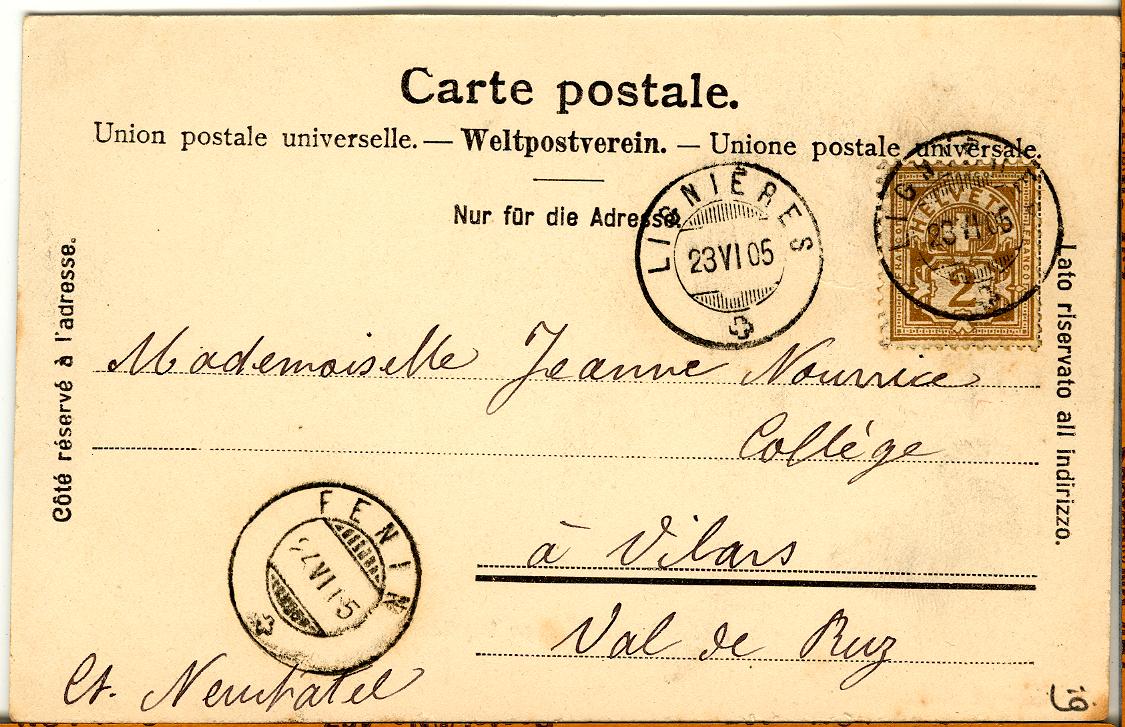 Carte postale.
Union postale universelle. — Weltpostverein. — Unione postale universale.
Nur für die Adresse.
LIGNIÈRES
23 VI 05
LIGNIÈRES
23 VI 05
HELVETIA
FRANCO
2
Côté réservé à l'adresse.
Lato riservato all indirizzo.
Mademoiselle Jeanne Nourrice
Collège
à Vilars
Val de Ruz
Ct. Neuchatel
FENIN
24 VI 05
19